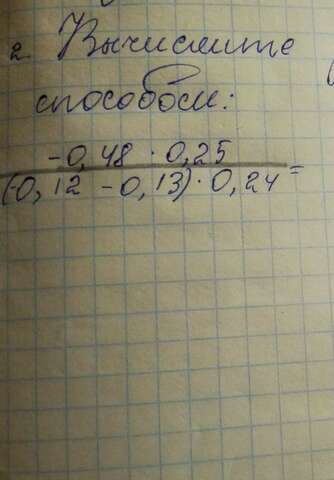 2. Вычислите
способом:
-0,48 · 0,25
(-0,12 -0,13) · 0,24 =